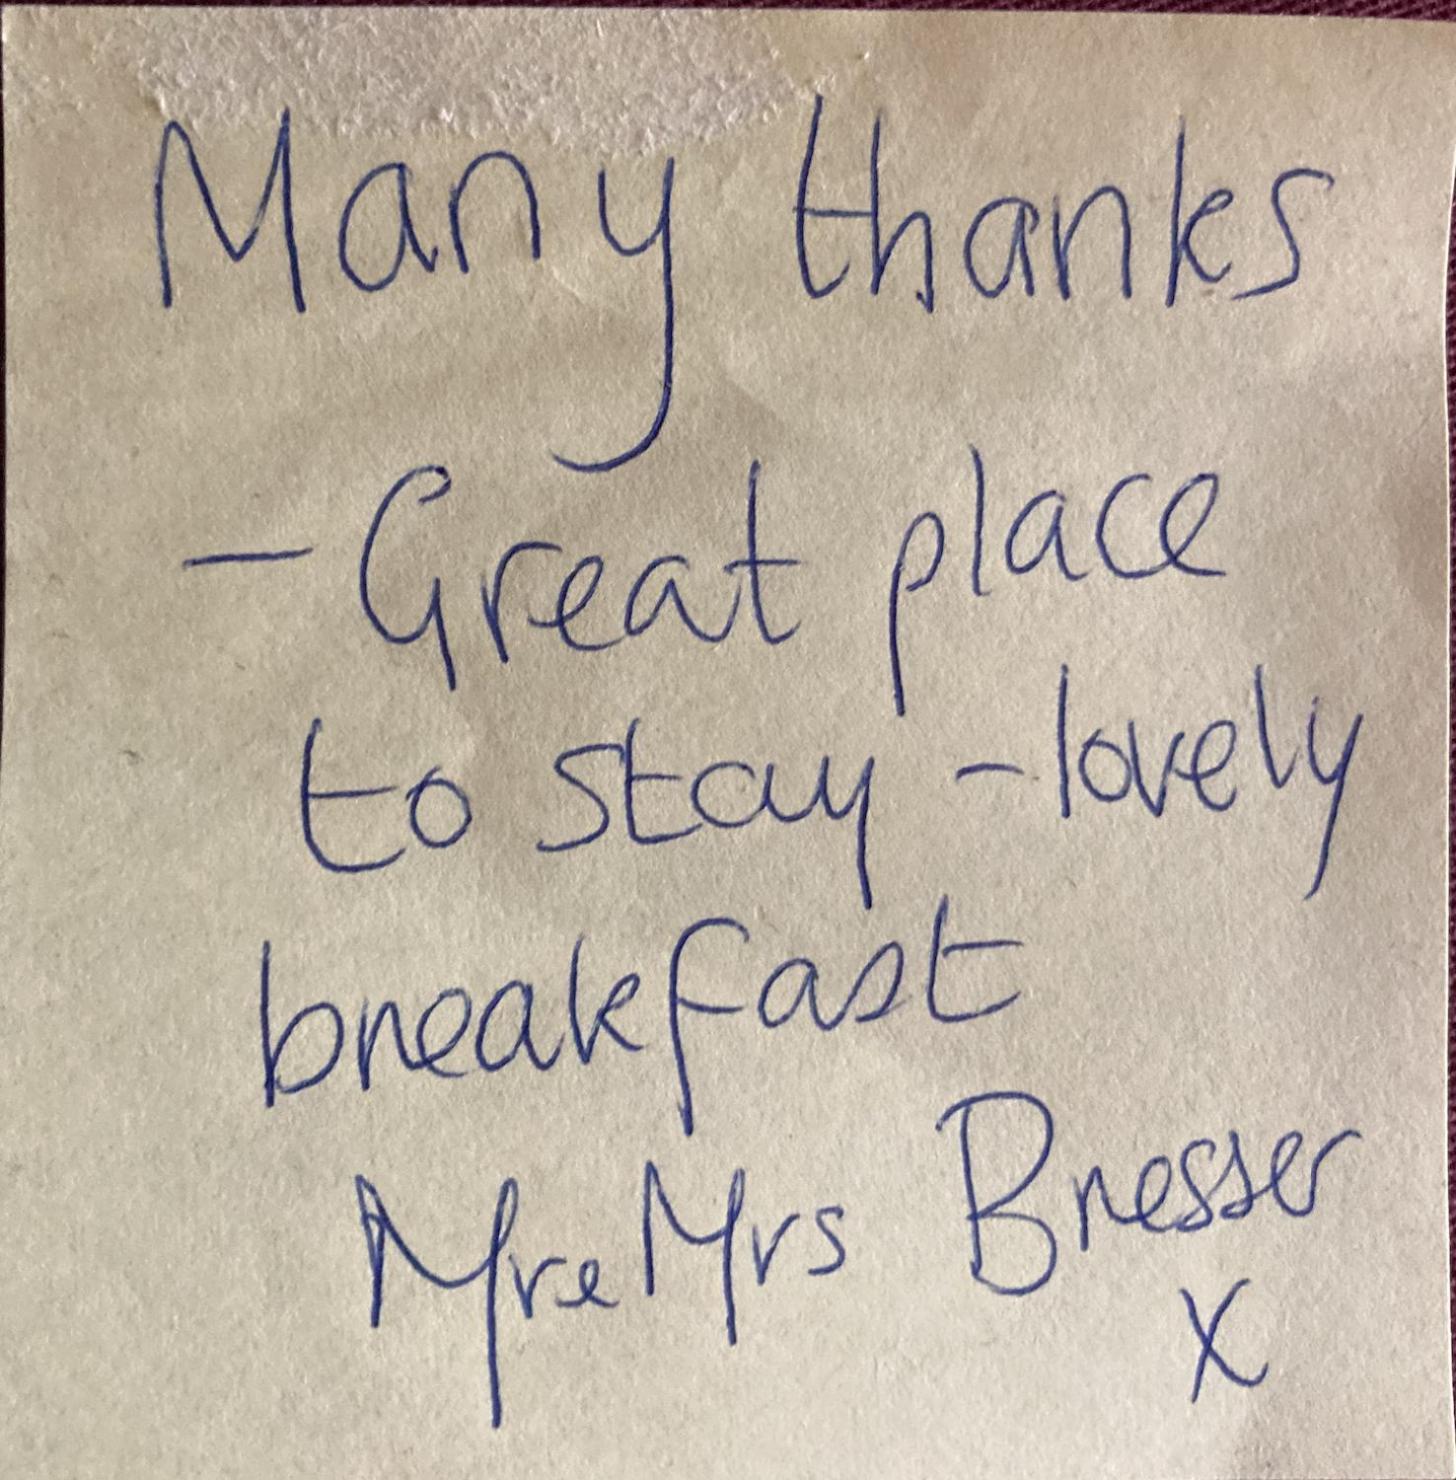 Many thanks
- Great place
to stay - lovely
breakfast
Mr e Mrs Bresser
x